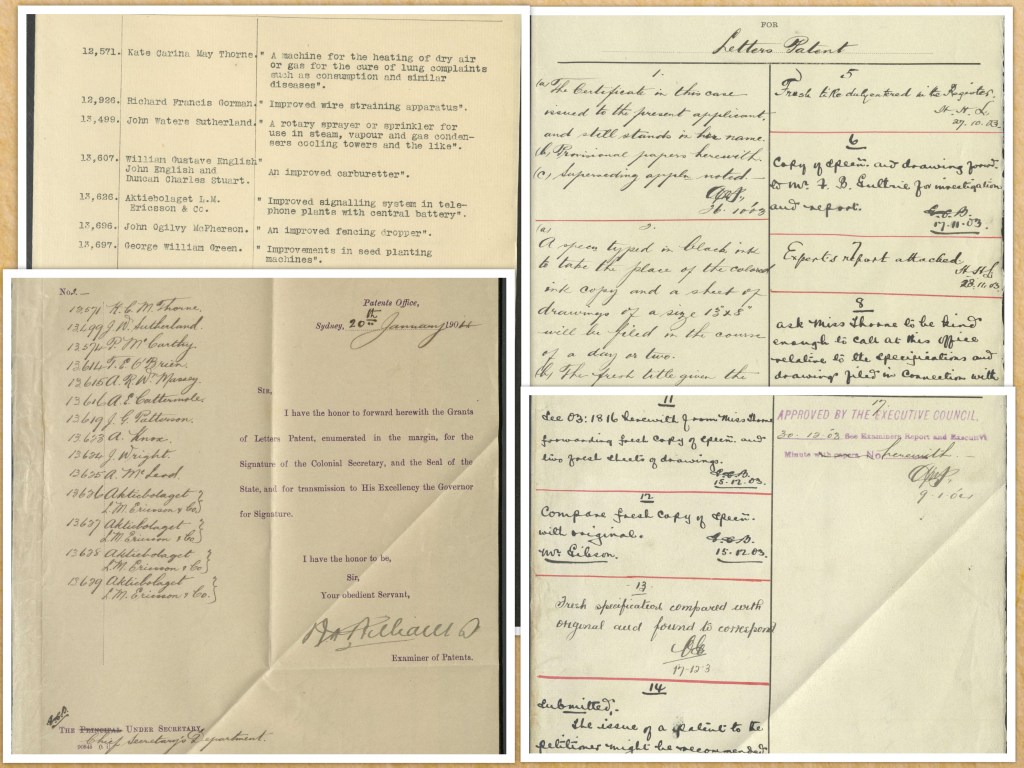 12,571. Kate Carina May Thorne. " A machine for the heating of dry air
or gas for the cure of lung complaints
such as consumption and similar
diseases".
12,926. Richard Francis Gorman. " Improved wire straining apparatus".
13,499. John Waters Sutherland. " A rotary sprayer or sprinkler for
use in steam, vapour and gas conden-
sers cooling towers and the like".
13,607. William Gustave English "
John English and
Duncan Charles Stuart. An improved carburetter".
13,626. Aktiebolaget L.M. " Improved signalling system in tele-
Ericsson & Co. phone plants with central battery".
13,696. John Ogilvy McPherson. " An improved fencing dropper".
13,697. George William Green. " Improvements in seed planting
machines".
FOR
Letters Patent
1.
(a) The Certificate in this case
issued to the present applicant,
and still stands in her name.
(b) Provisional papers herewith.
(c) Superseding applcn noted
26.10.03
(a) 2.
A specn typed in black ink
to take the place of the colored
ink copy and a sheet of
drawings of a size 13"x8"
will be filed in the course
of a day or two.
(b) The fresh title given the
5
Fresh title duly entered in the Register.
H.H.L.
27.10.03
6
Copy of specn. and drawing forwd.
to Mr. F. B. Guthrie for investigation
and report.
G.o.B.
17.11.03.
7
Expert's report attached
H.H.L
28.11.03
8
ask Miss Thorne to be kind
enough to call at this office
relative to the specifications and
drawing filed in connection with
No. —
12571 K. C. M. Thorne.
13499 J. W. Sutherland.
13574 P. McCarthy
13614 T. E. O'Brien.
13615 A. R. Wm Massey.
13616 A. E. Cattermole.
13619 J. G. Patterson.
13623 A. Knox.
13624 J. Wright.
13625 A. McLeod.
13626 Aktiebolaget }
L. M. Ericsson & Co }
13627 Aktiebolaget }
L. M. Ericsson & Co }
13628 Aktiebolaget }
L. M. Ericsson & Co. }
13629 Aktiebolaget }
L. M. Ericsson & Co. }
Patents Office,
Sydney, 20th January 1904
Sir,
I have the honor to forward herewith the Grants
of Letters Patent, enumerated in the margin, for the
Signature of the Colonial Secretary, and the Seal of the
State, and for transmission to His Excellency the Governor
for Signature.
I have the honor to be,
Sir,
Your obedient Servant,
Examiner of Patents.
THE PRINCIPAL UNDER SECRETARY,
Chief Secretary's Department.
11
See 03:1816 herewith from Miss Thorne
forwarding fresh copy of specn. and
two fresh sheets of drawings.
G.o.B.
15.12.03.
12
Compare fresh copy of specn.
with original.
G.o.B.
Mr. Gibson. 15.12.03.
13
Fresh specification compared with
original and found to correspond
17.12.3
14
Submitted,-
The issue of a patent to the
petitioner might be recommended
17.
APPROVED BY THE EXECUTIVE COUNCIL.
30-12-03 See Examiners Report and Executive
Minute with papers No. herewith —
9.1.04